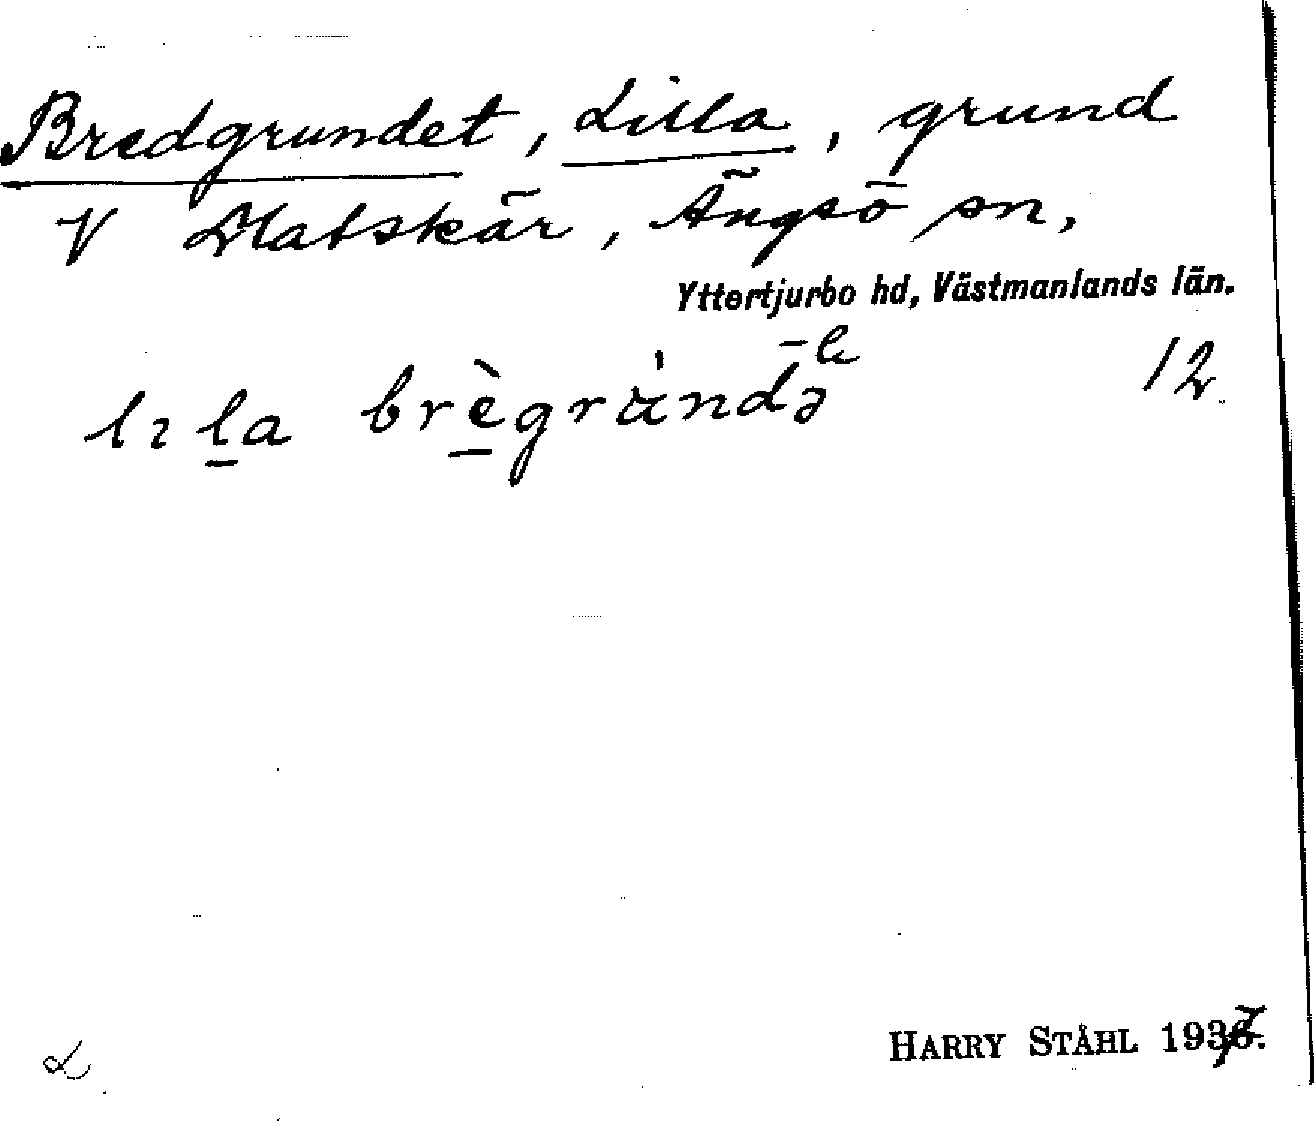 Bredgrundet, Lilla, grund
V Matskär, Ängsö sn,
Yttertjurbo hd, Västmanlands län.
-e
lıla brègrùndə 12
L
HARRY STÅHL 1937.